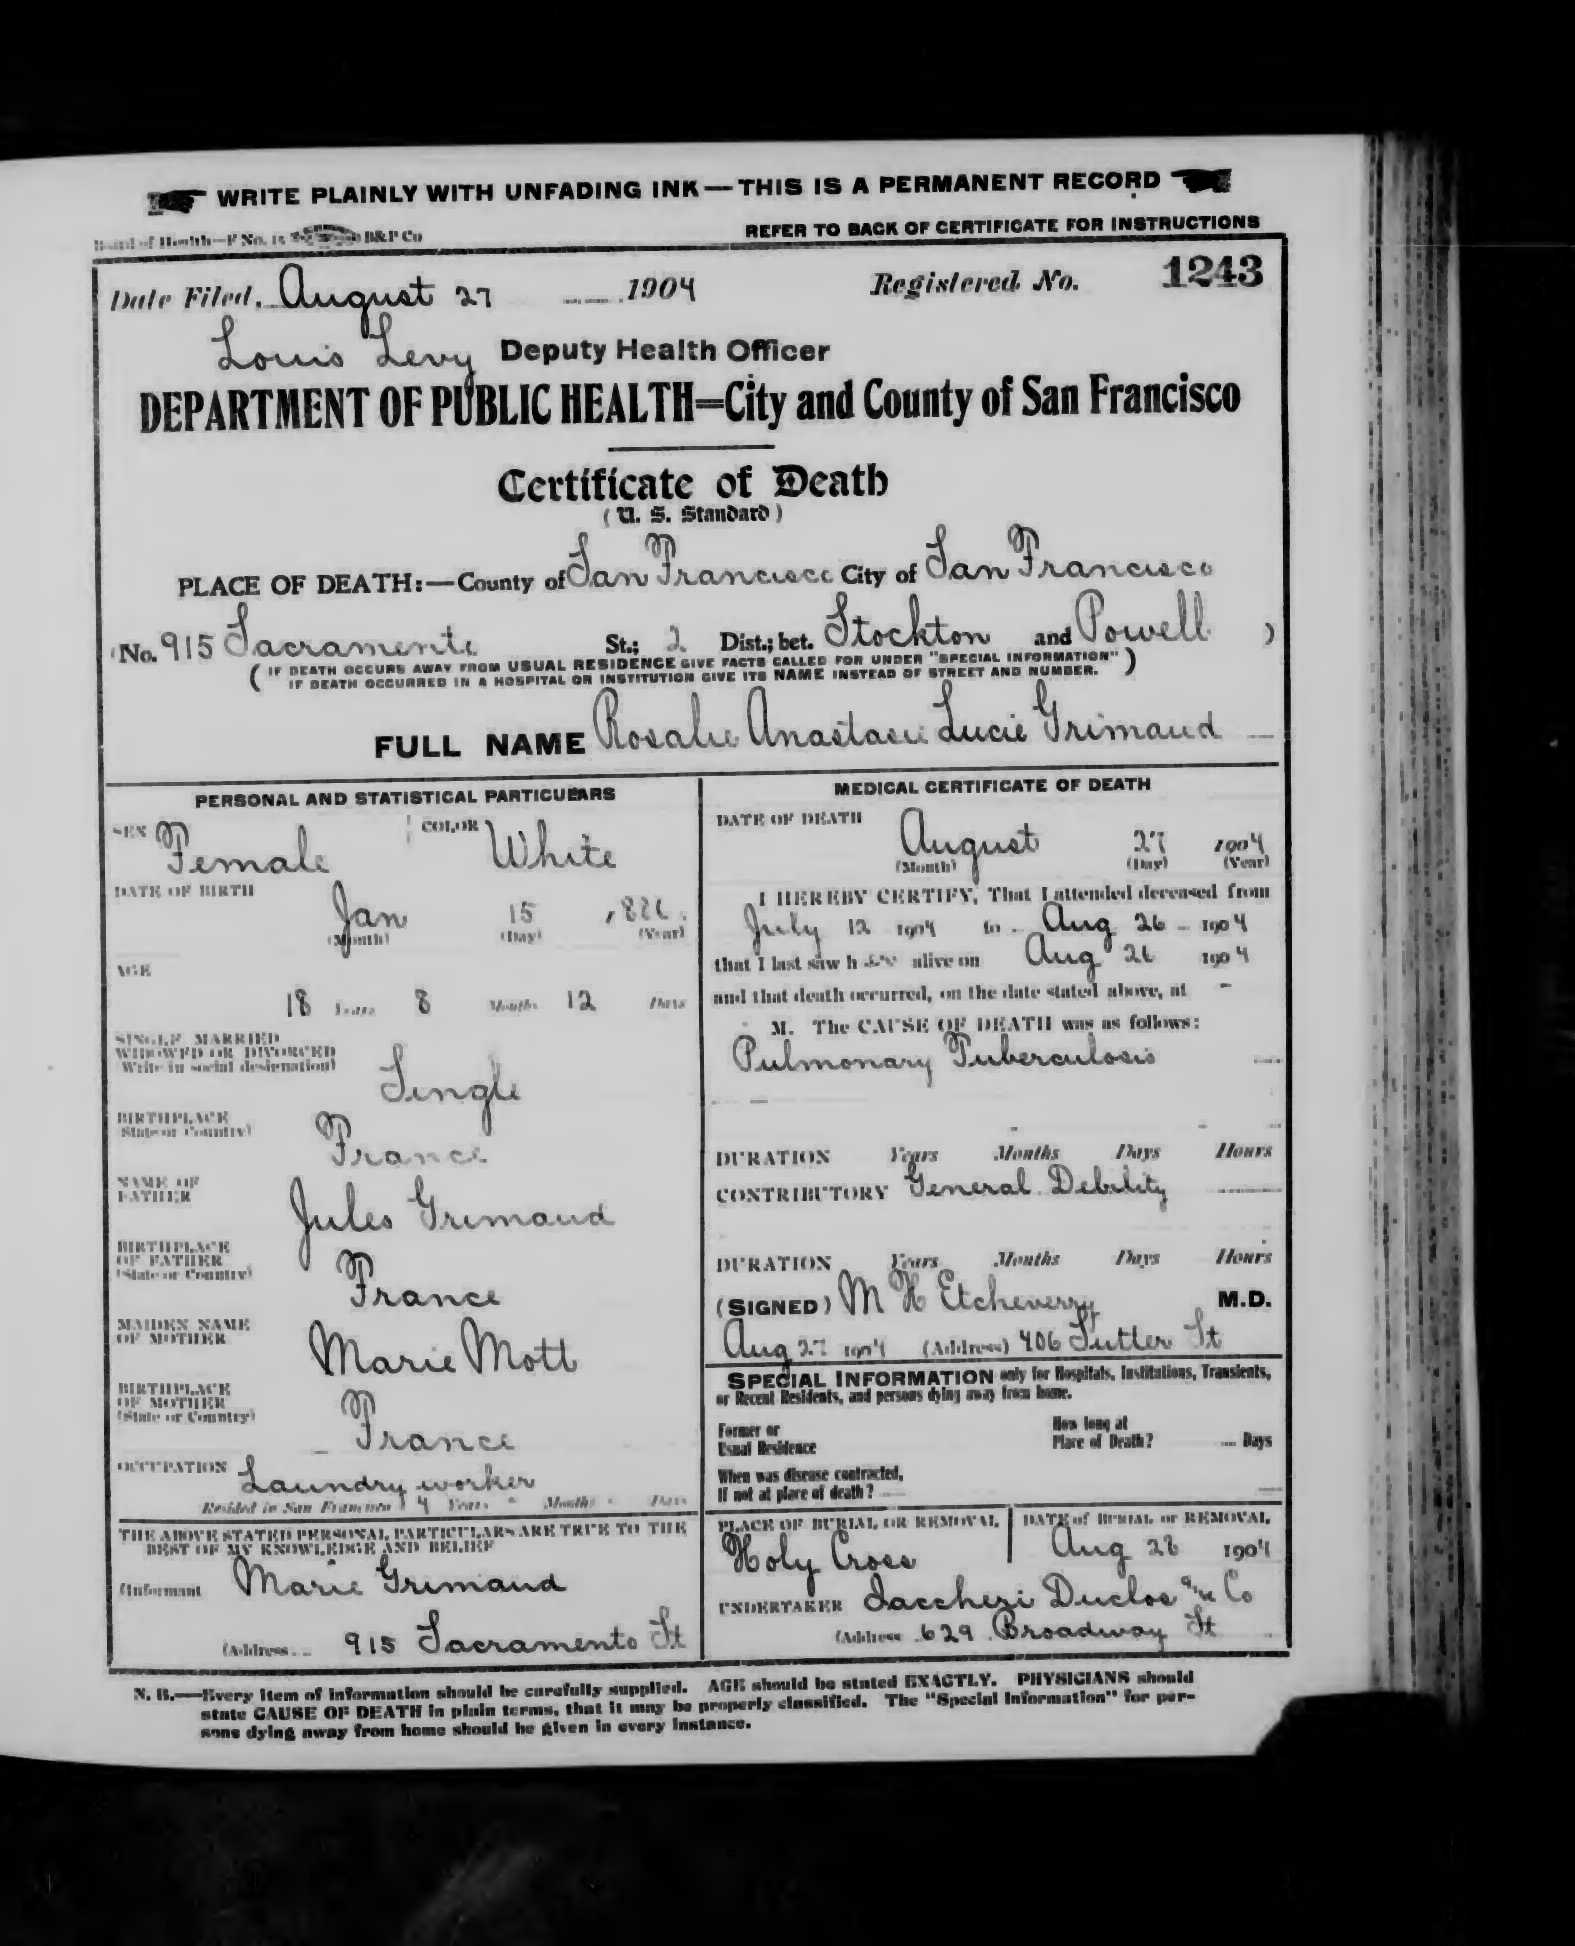 WRITE PLAINLY WITH UNFADING INK—THIS IS A PERMANENT RECORD
Board of Health—F No. 15 B&P Co
REFER TO BACK OF CERTIFICATE FOR INSTRUCTIONS
Date Filed, August 27 1904 Registered No. 1243
Louis Levy Deputy Health Officer
DEPARTMENT OF PUBLIC HEALTH=City and County of San Francisco
Certificate of Death
(U. S. Standard)
PLACE OF DEATH:—County of San Francisco City of San Francisco
(No. 915 Sacramento St.; 2 Dist.; bet. Stockton and Powell )
( IF DEATH OCCURS AWAY FROM USUAL RESIDENCE GIVE FACTS CALLED FOR UNDER "SPECIAL INFORMATION" )
IF DEATH OCCURRED IN A HOSPITAL OR INSTITUTION GIVE ITS NAME INSTEAD OF STREET AND NUMBER.
FULL NAME Rosalie Anastasie Lucie Grimaud
PERSONAL AND STATISTICAL PARTICULARS
SEX Female COLOR White
DATE OF BIRTH
Jan 15 1886
(Month) (Day) (Year)
AGE
18 Years 8 Months 12 Days
SINGLE MARRIED
WIDOWED OR DIVORCED
(Write in social designation) Single
BIRTHPLACE
State or Country) France
NAME OF
FATHER Jules Grimaud
BIRTHPLACE
OF FATHER
(State or Country) France
MAIDEN NAME
OF MOTHER Marie Mott
BIRTHPLACE
OF MOTHER
(State or Country) France
OCCUPATION Laundry worker
Resided in San Francisco 4 Years Months Days
THE ABOVE STATED PERSONAL PARTICULARS ARE TRUE TO THE
BEST OF MY KNOWLEDGE AND BELIEF
(Informant Marie Grimaud
(Address 915 Sacramento St
MEDICAL CERTIFICATE OF DEATH
DATE OF DEATH
August 27 1904
(Month) (Day) (Year)
I HEREBY CERTIFY, That I attended deceased from
July 12 1904 to Aug 26 1904
that I last saw h er alive on Aug 26 1904
and that death occurred, on the date stated above, at -
M. The CAUSE OF DEATH was as follows:
Pulmonary Tuberculosis
DURATION Years Months Days Hours
CONTRIBUTORY General Debility
DURATION Years Months Days Hours
(SIGNED) M H Etcheverry M.D.
Aug 27 1904 (Address) 406 Sutter St
SPECIAL INFORMATION only for Hospitals, Institutions, Transients,
or Recent Residents, and persons dying away from home.
Former or
Usual Residence
How long at
Place of Death? Days
When was disease contracted,
If not at place of death?
PLACE OF BURIAL OR REMOVAL DATE of BURIAL or REMOVAL
Holy Cross Aug 28 1904
UNDERTAKER Iaccheri Duclos & Co
(Address 629 Broadway St
N. B.—Every item of information should be carefully supplied. AGE should be stated EXACTLY. PHYSICIANS should
state CAUSE OF DEATH in plain terms, that it may be properly classified. The "Special Information" for per-
sons dying away from home should be given in every instance.